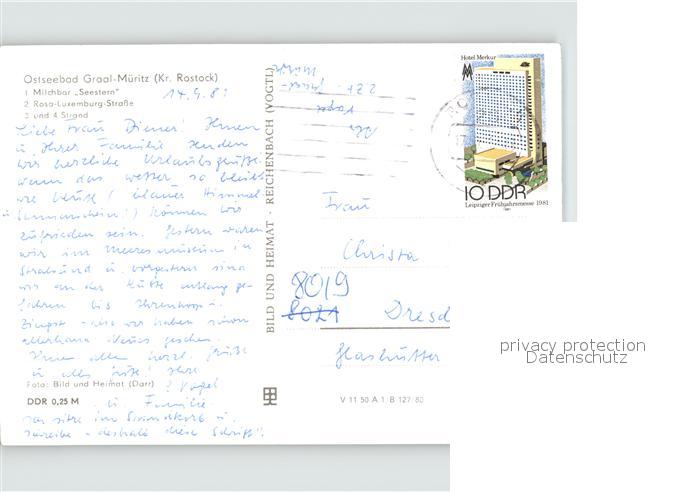 Ostseebad Graal-Müritz (Kr. Rostock)
1 Milchbar „Seestern"
2 Rosa-Luxemburg-Straße
3 und 4 Strand
Liebe Frau Diener! Ihnen
u. Ihrer Familie senden
wir herzliche Urlaubsgrüße.
Wenn das Wetter so bleibt
wie heute (blauer Himmel
können wir
zufrieden sein. Gestern waren
wir im Meeresmuseum in
Stralsund u. vorgestern sind
wir an der Küste entlang ge-
fahren bis Ahrenshoop
Zingst - also wir haben schon
allerhand Neues gesehen.
Ihnen allen herzl. Grüße
u. alles Gute! Ihre
Vogel
u. Familie
Foto: Bild und Heimat (Darr)
DDR 0,25 M
sitze im Strandkorb u.
schreibe - deshalb diese Schrift!
BILD UND HEIMAT · REICHENBACH (VOGTL)
Hotel Merkur
10 DDR
Leipziger Frühjahrsmesse 1981
Frau
Christa
8019
8021 Dresd
Glashütter
V 11 50 A 1/B 127/80
privacy protection
Datenschutz